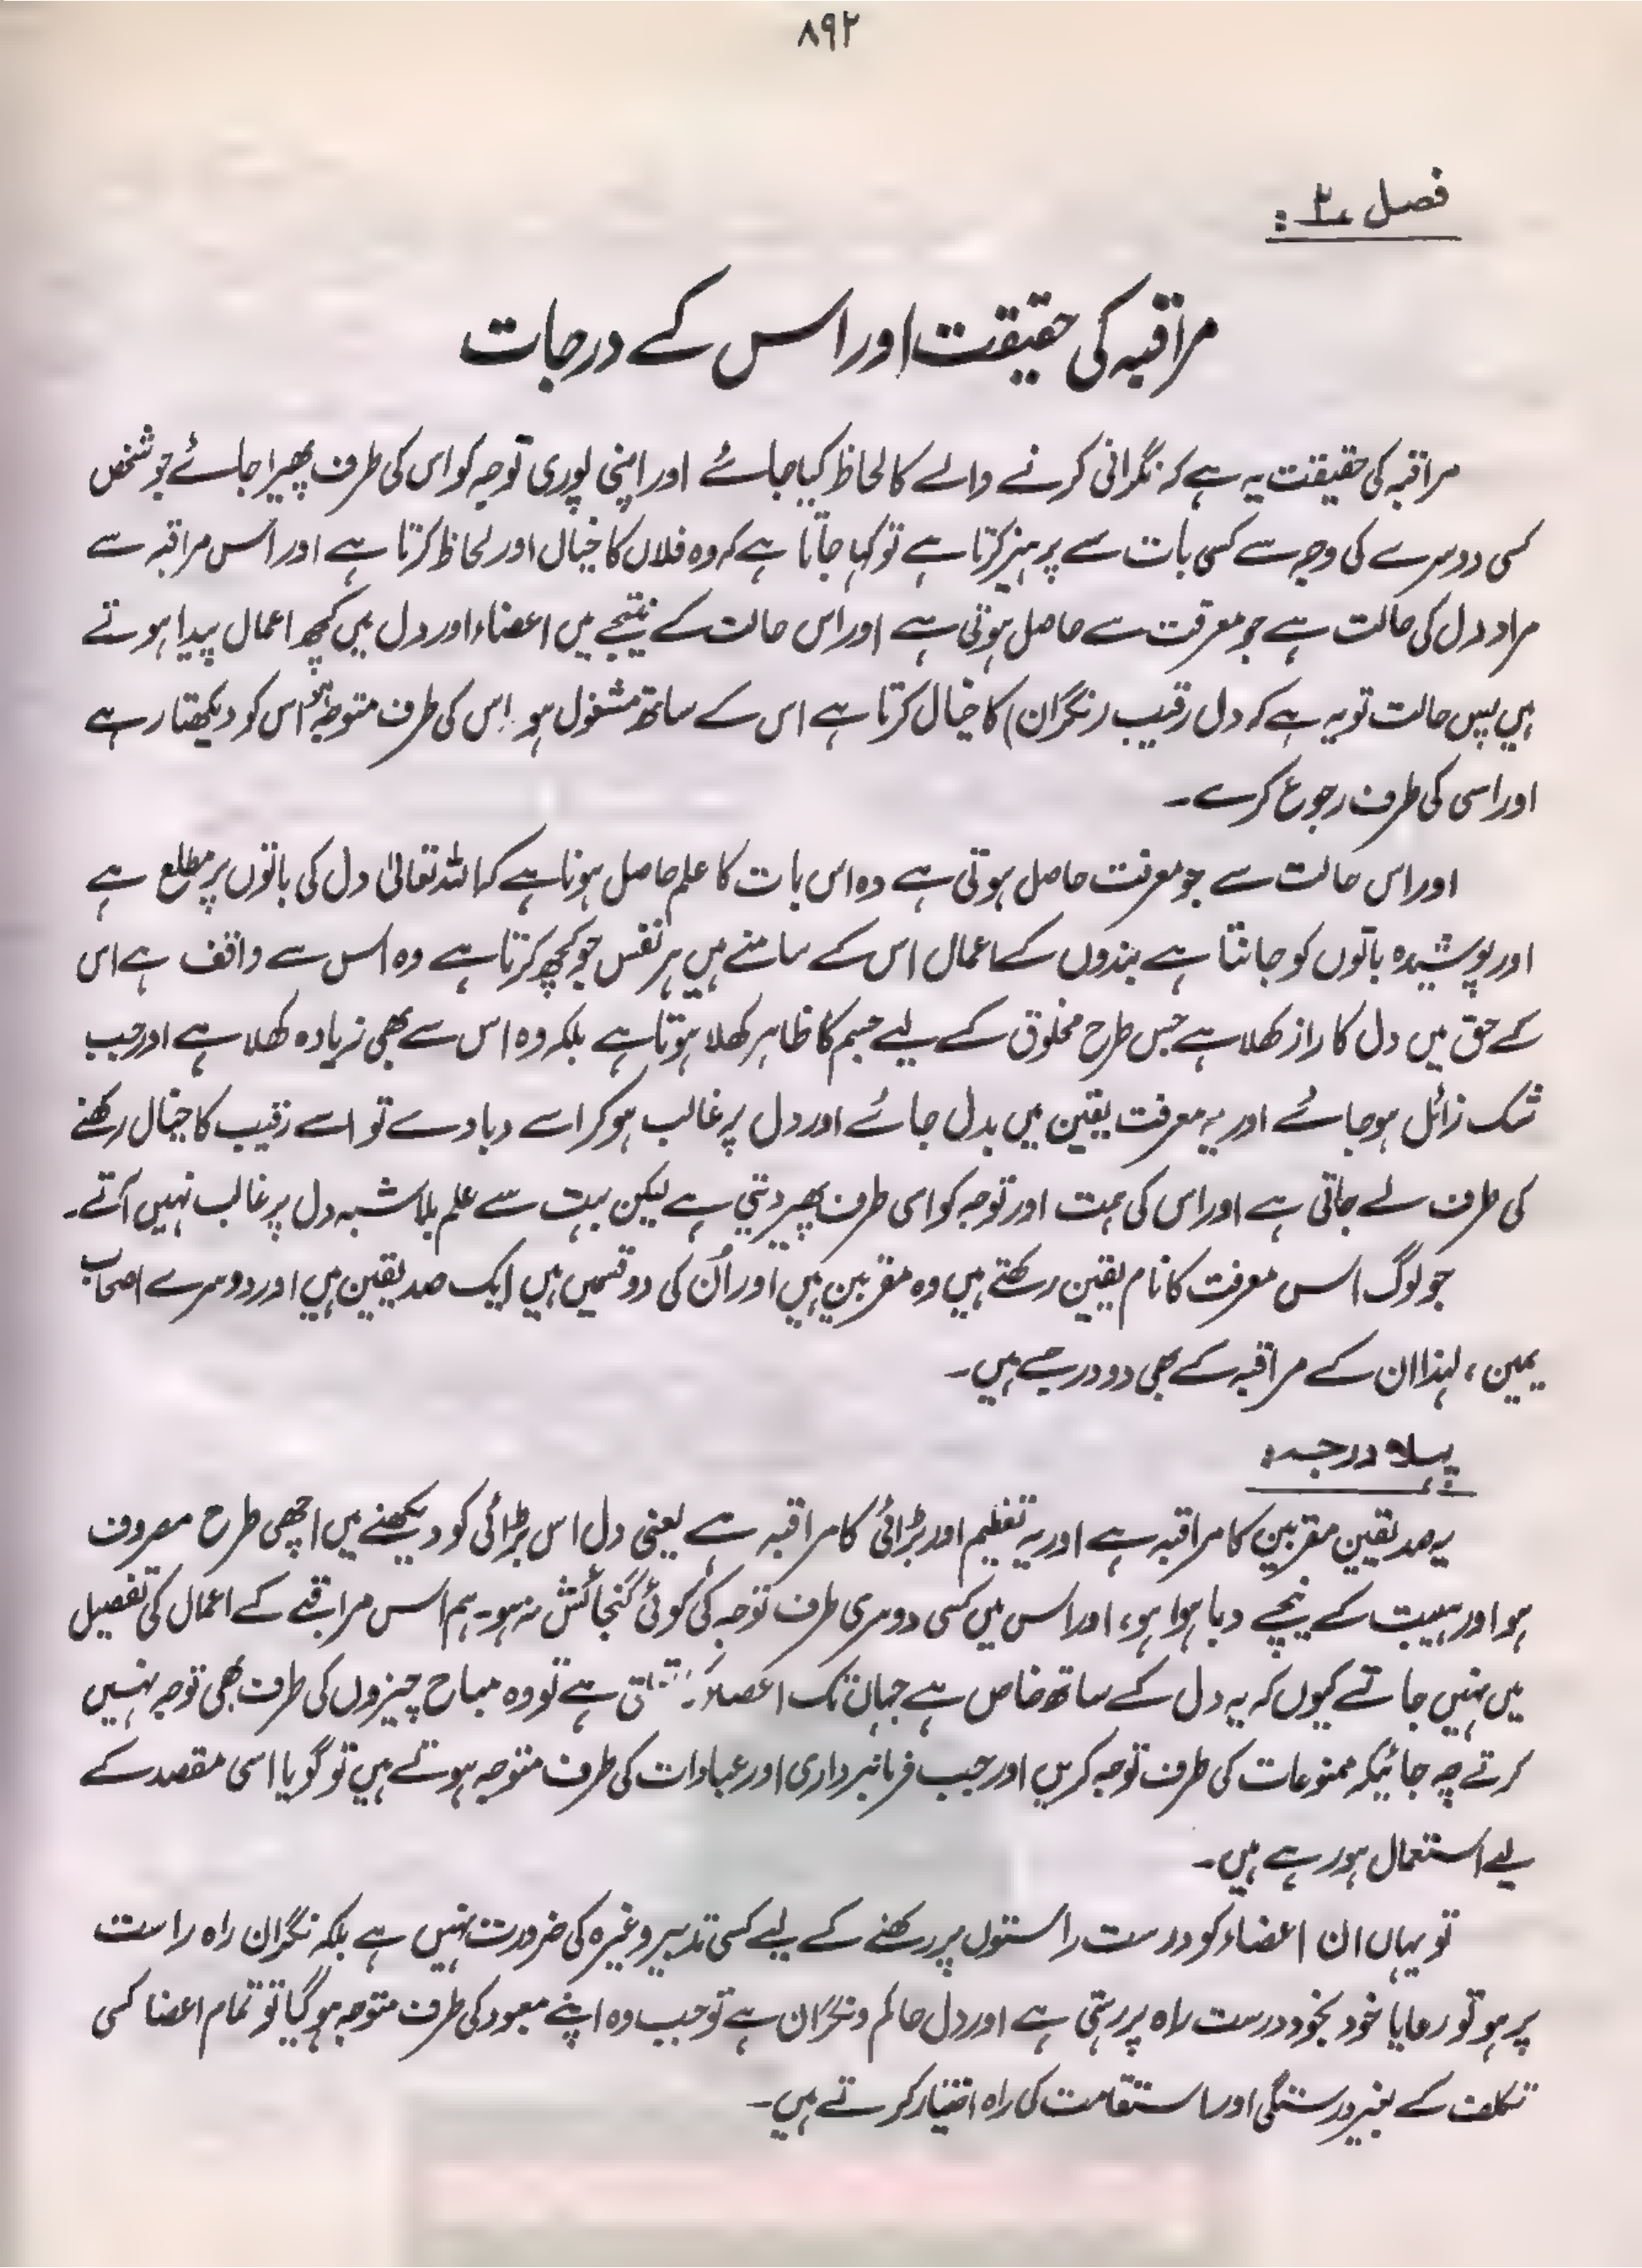 ۸۹۲
فصل ۲:
مراقبہ کی حقیقت اور اس کے درجات
مراقبہ کی حقیقت یہ ہے کہ نگرانی کرنے والے کا لحاظ کیا جائے اور اپنی پوری توجہ کو اس کی طرف پھیرا جائے جو شخص
کسی دوسرے کی وجہ سے کسی بات سے پرہیز کرتا ہے تو کہا جاتا ہے کہ وہ فلاں کا خیال اور لحاظ کرتا ہے اور اس مراقبہ سے
مراد دل کی حالت ہے جو معرفت سے حاصل ہوتی ہے اور اس حالت کے نتیجے میں اعضاء اور دل میں کچھ اعمال پیدا ہوتے
ہیں پس حالت تو یہ ہے کہ دل رقیب (نگران) کا خیال کرتا ہے اس کے ساتھ مشغول ہو اِس کی طرف متوجہ ہو اس کو دیکھتا رہے
اور اسی کی طرف رجوع کرے۔
اور اس حالت سے جو معرفت حاصل ہوتی ہے وہ اس بات کا علم حاصل ہونا ہے کہ اللہ تعالیٰ دل کی باتوں پر مطلع ہے
اور پوشیدہ باتوں کو جانتا ہے بندوں کے اعمال اس کے سامنے ہیں ہر نفس جو کچھ کرتا ہے وہ اس سے واقف ہے اس
کے حق میں دل کا راز کھلا ہے جس طرح مخلوق کے لیے جسم کا ظاہر کھلا ہوتا ہے بلکہ وہ اس سے بھی زیادہ کھلا ہے اور جب
شک زائل ہو جائے اور یہ معرفت یقین میں بدل جائے اور دل پر غالب ہو کر اسے دبا دے تو اسے رقیب کا خیال رکھنے
کی طرف لے جاتی ہے اور اس کی ہمت اور توجہ کو اسی طرف پھیر دیتی ہے لیکن بہت سے علم بلاشبہ دل پر غالب نہیں آتے۔
جو لوگ اس معرفت کا نام یقین رکھتے ہیں وہ مقربین ہیں اور اُن کی دو قسمیں ہیں ایک صدیقین ہیں اور دوسرے اصحاب
یمین، لہذا ان کے مراقبہ کے بھی دو درجے ہیں۔
پہلا درجہ:
یہ صدیقین مقربین کا مراقبہ ہے اور یہ تعظیم اور بڑائی کا مراقبہ ہے یعنی دل اس بڑائی کو دیکھنے میں اچھی طرح مصروف
ہو اور ہیبت کے نیچے دبا ہوا ہو، اور اس میں کسی دوسری طرف توجہ کی کوئی گنجائش نہ ہو۔ ہم اس مراقبے کے اعمال کی تفصیل
میں نہیں جاتے کیوں کہ یہ دل کے ساتھ خاص ہے جہاں تک اعضاء ہے تو وہ مباح چیزوں کی طرف بھی توجہ نہیں
کرتے چہ جائیکہ ممنوعات کی طرف توجہ کریں اور جب فرمانبرداری اور عبادات کی طرف متوجہ ہوتے ہیں تو گویا اسی مقصد کے
لیے استعمال ہو رہے ہیں۔
تو یہاں ان اعضاء کو درست راستوں پر رکھنے کے لیے کسی تدبیر وغیرہ کی ضرورت نہیں ہے بلکہ نگران راہ راست
پر ہو تو رعایا خود بخود درست راہ پر رہتی ہے اور دل حاکم و نگران ہے تو جب وہ اپنے معبود کی طرف متوجہ ہو گیا تو تمام اعضا کسی
تکلف کے بغیر درستگی اور استقامت کی راہ اختیار کرتے ہیں۔